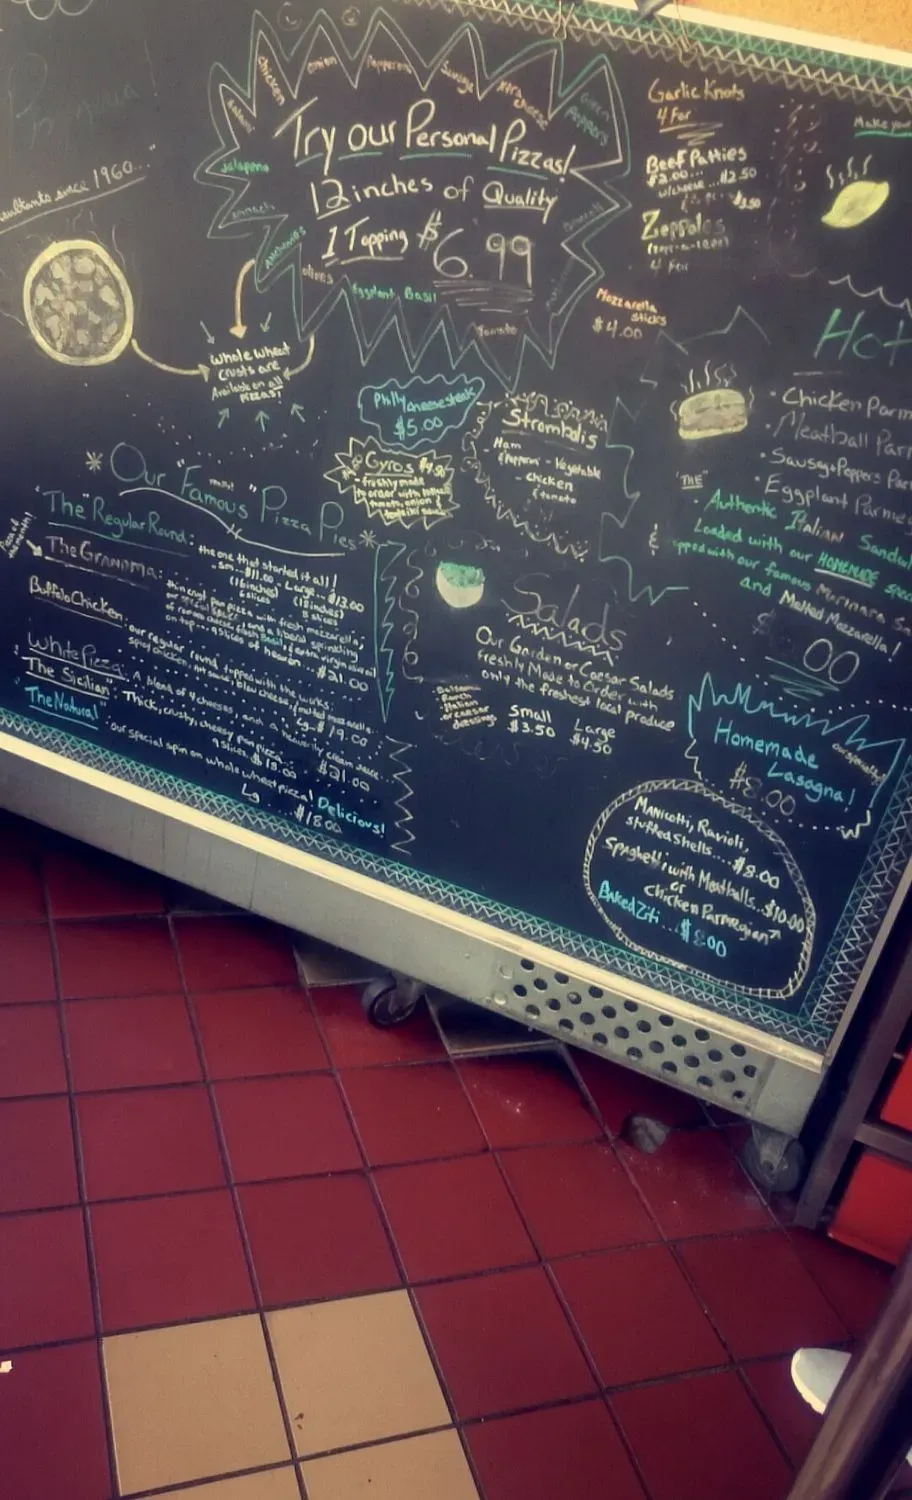 since 1960..."
chicken
onion
Pepperoni
Sausage
Xtra cheese
Green Peppers
Jalapeno
Spinach
Anchovies
olives
Eggplant Basil
Tomato
Try our Personal Pizzas!
12 inches of Quality
1 Topping $6.99
Whole wheat
crusts are
Available on all
pizzas!
Garlic Knots
4 For
Beef Patties
$2.00... w/cheese...$2.50
$3.50
Zeppoles
4 For
Mozzarella
sticks
$4.00
Make your
Philly cheesesteak
$5.00
Gyros
- freshly made
to order with
tomato, onion
Strombolis
Ham
Pepperoni - Vegetable
- chicken
& tomato
Hot
• Chicken Parm
• Meatball Parm
• Sausage & Peppers
• Eggplant Parme
"THE"
Authentic Italian
Loaded with our HOMEMADE
with our famous Marinara
and Melted Mozzarella!
00
Our "Famous" Pizza Pies
"The Regular Round: the one that started it all!
sm...$11.00 - Large...$13.00
(16 inches) (18 inches)
6 slices 8 slices
The Grandma: thin crust pan pizza with fresh mozzarella,
and a liberal sprinkling
of romano cheese, fresh basil & extra virgin olive oil
on top... 9 slices of heaven...$21.00
Buffalo Chicken: our regular round topped with the works:
spicy chicken, hot sauce, bleu cheese, melted mozzarella.
Lg...$19.00
White Pizza: A blend of 4 cheeses, and a heavenly cream sauce
$21.00
The Sicilian: Thick, crusty, cheesy pan pizza.
9 slices.. $18.00
"The Natural" our special spin on whole wheat pizza! Delicious!
Lg...$18.00
Salads
Our Garden or Caesar Salads
freshly Made to Order, with
only the freshest local produce
- Balsamic
- Ranch
- Italian
or caesar
dressings
Small Large
$3.50 $4.50
Homemade
Lasagna!
our specialty!
$8.00
Manicotti, Ravioli,
stuffed Shells....$8.00
Spaghetti, with Meatballs...$10.00
or
chicken Parmegian
Baked Ziti...$8.00